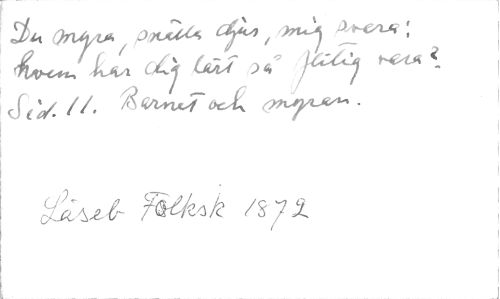 Du myra, snälla djur, mig svara:
hvem har dig lärt så flitig vara?
Sid. 11. Barnet och myran.
Läseb Folksk 1872